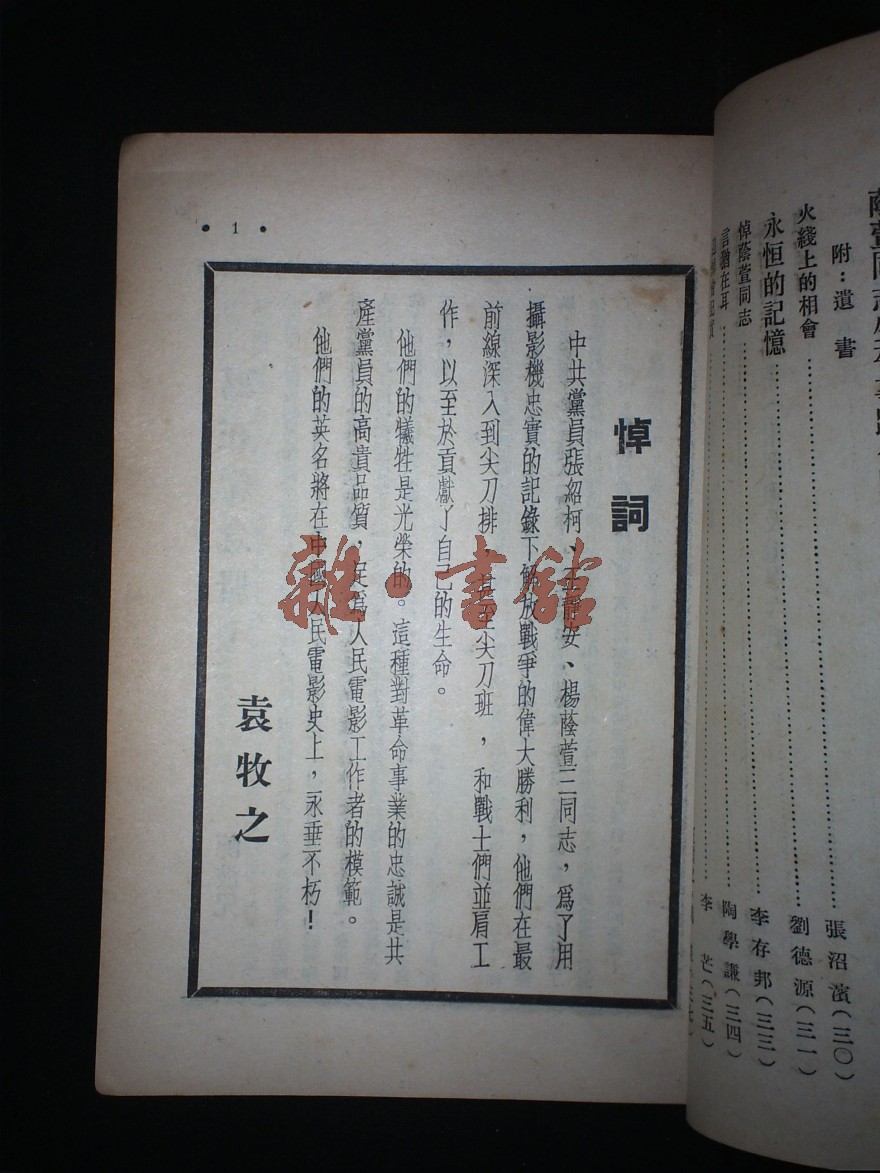 附：遺書
張沼濱（三〇）
火綫上的相會
劉德源（三一）
永恒的記憶
李存邦（三三）
悼蔭萱同志
陶學謙（三四）
言猶在耳
李 芒（三五）
• 1 •
悼詞
中共黨員張紹柯、王靜安、楊蔭萱三同志，爲了用
攝影機忠實的記錄下解放戰爭的偉大勝利，他們在最
前線深入到尖刀排，甚至尖刀班，和戰士們並肩工
作，以至於貢獻了自己的生命。
他們的犧牲是光榮的。這種對革命事業的忠誠是共
產黨員的高貴品質，足爲人民電影工作者的模範。
他們的英名將在中國人民電影史上，永垂不朽！
袁牧之
雜·書館